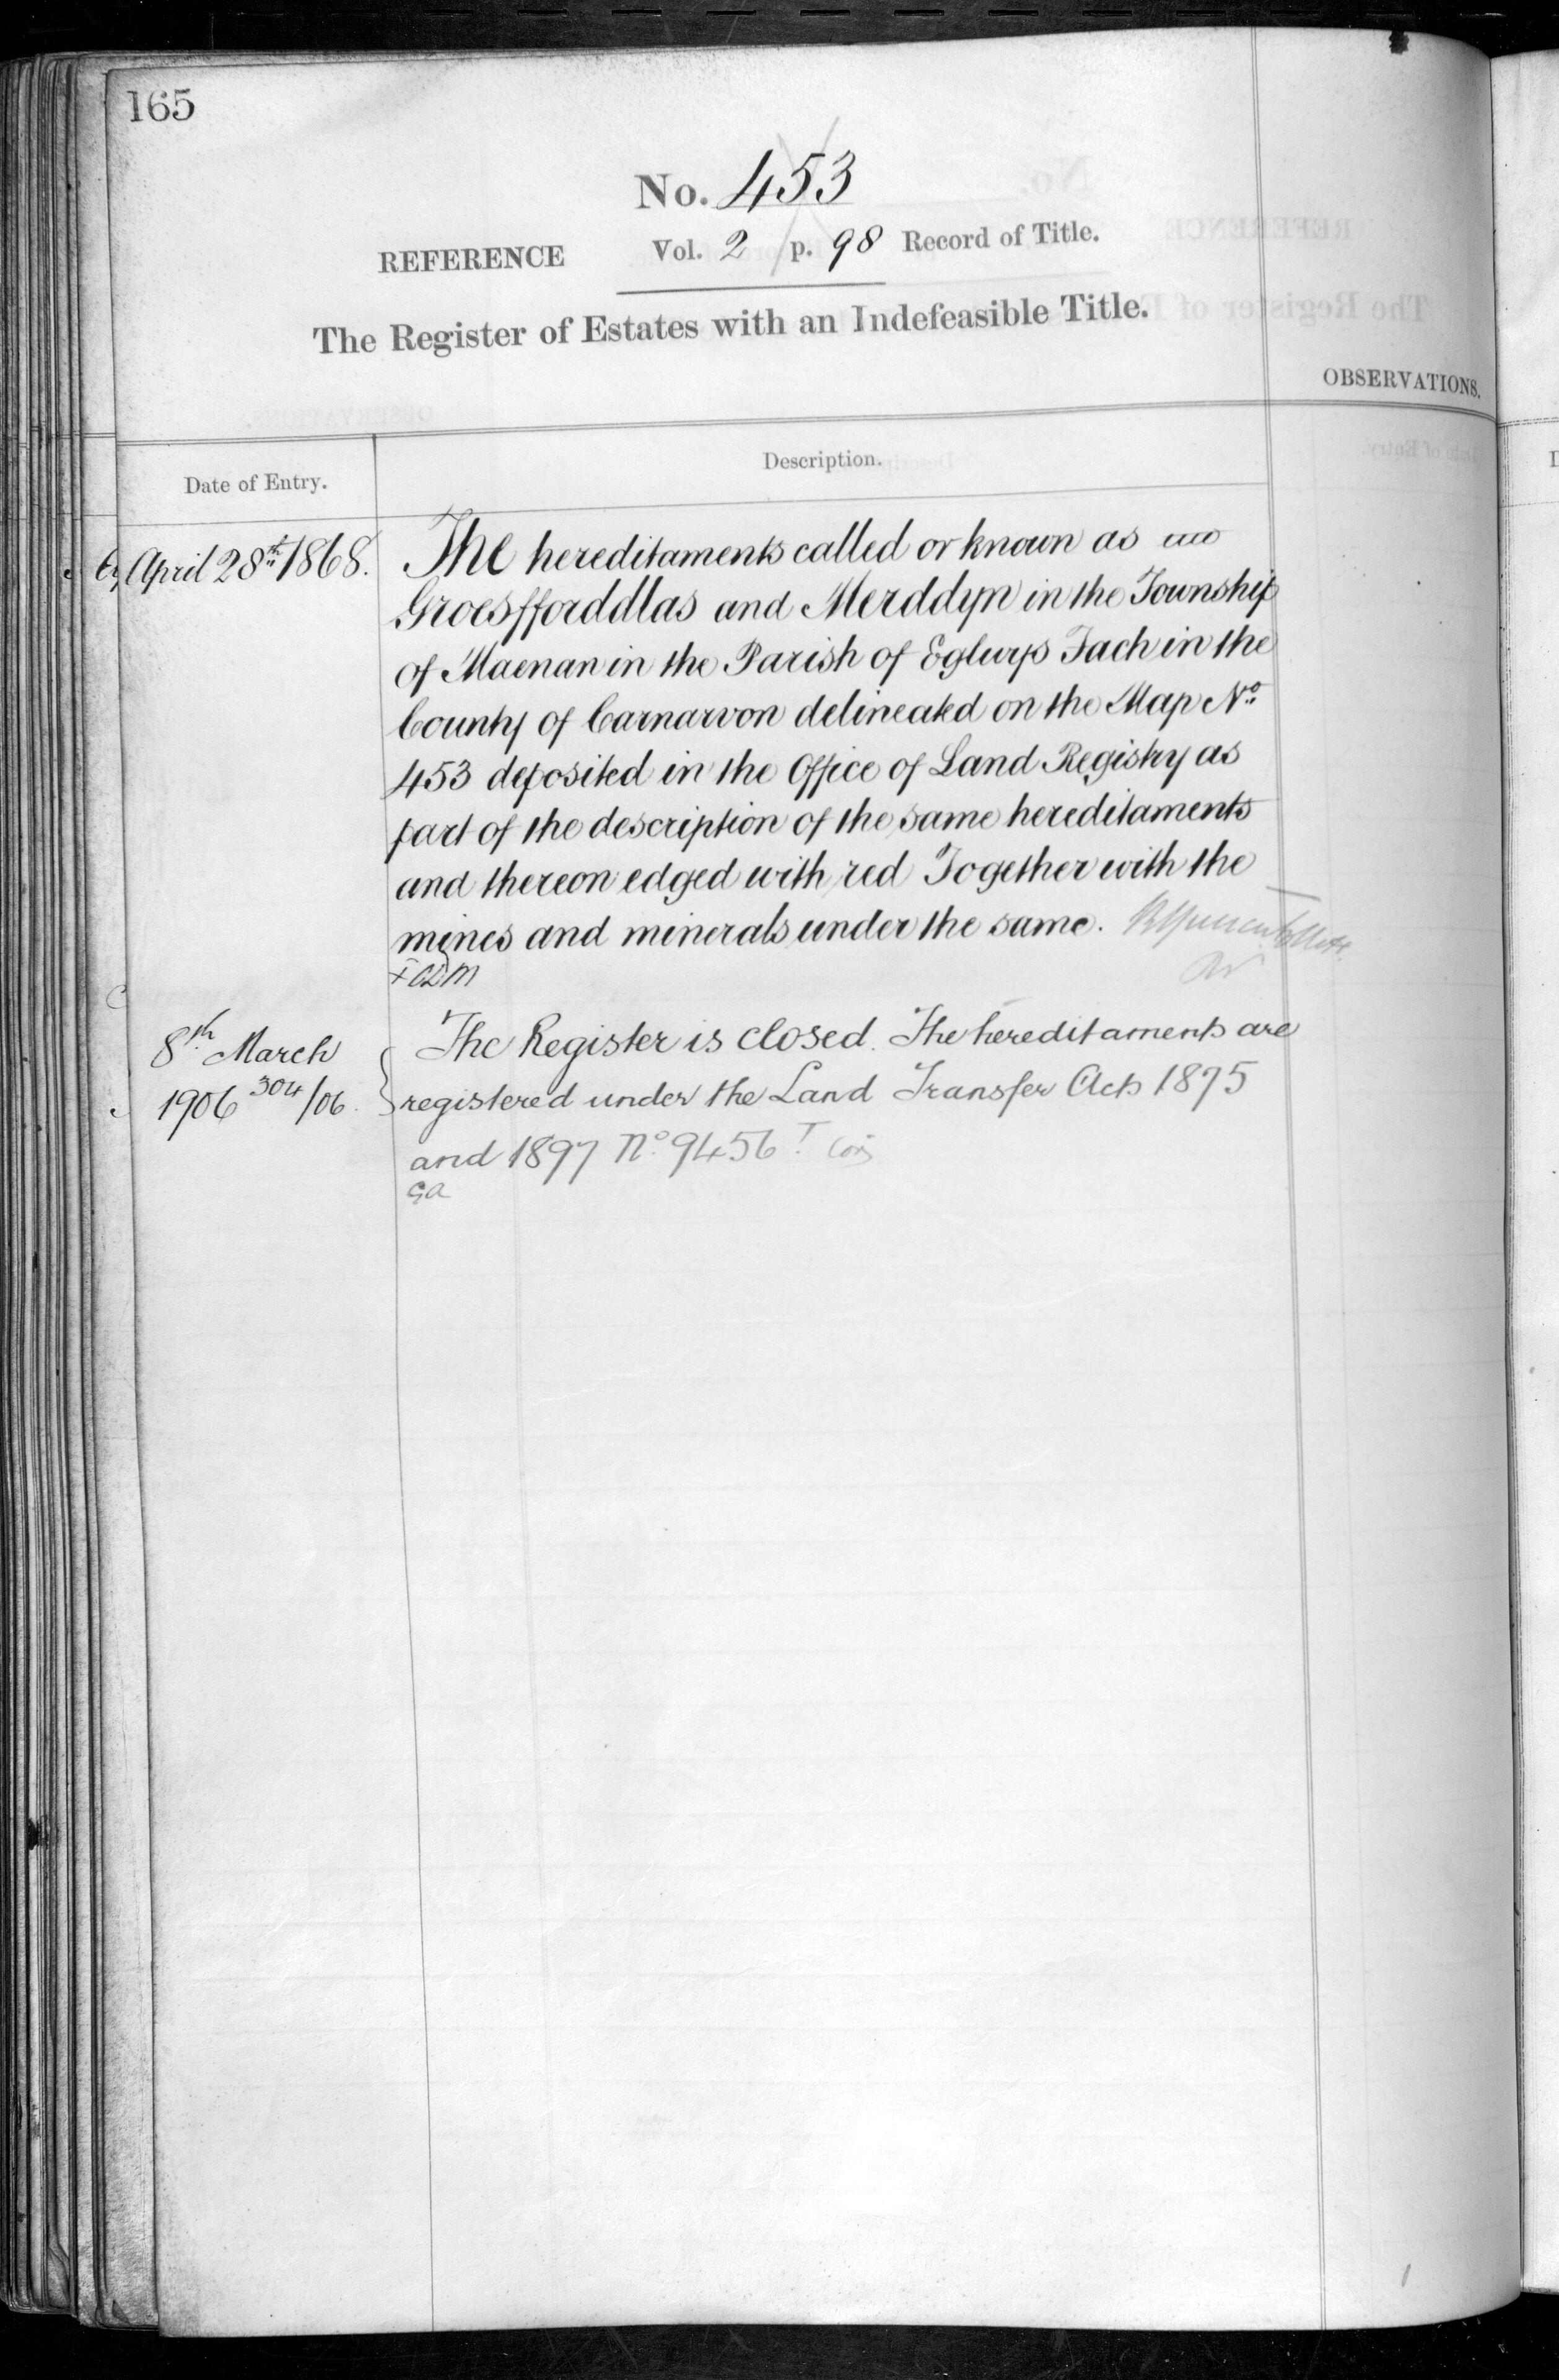 165
No. 453
REFERENCE Vol. 2 p. 98 Record of Title.
The Register of Estates with an Indefeasible Title.
OBSERVATIONS.
Date of Entry.
Description.
April 28th 1868.
The hereditaments called or known as
Groesfforddlas and Merddyn in the Township
of Maenan in the Parish of Eglwys Fach in the
County of Carnarvon delineated on the Map No.
453 deposited in the Office of Land Registry as
part of the description of the same hereditaments
and thereon edged with red Together with the
mines and minerals under the same.
8th March
1906 304/06.
The Register is closed. The hereditaments are
registered under the Land Transfer Acts 1875
and 1897 No. 9456
GA